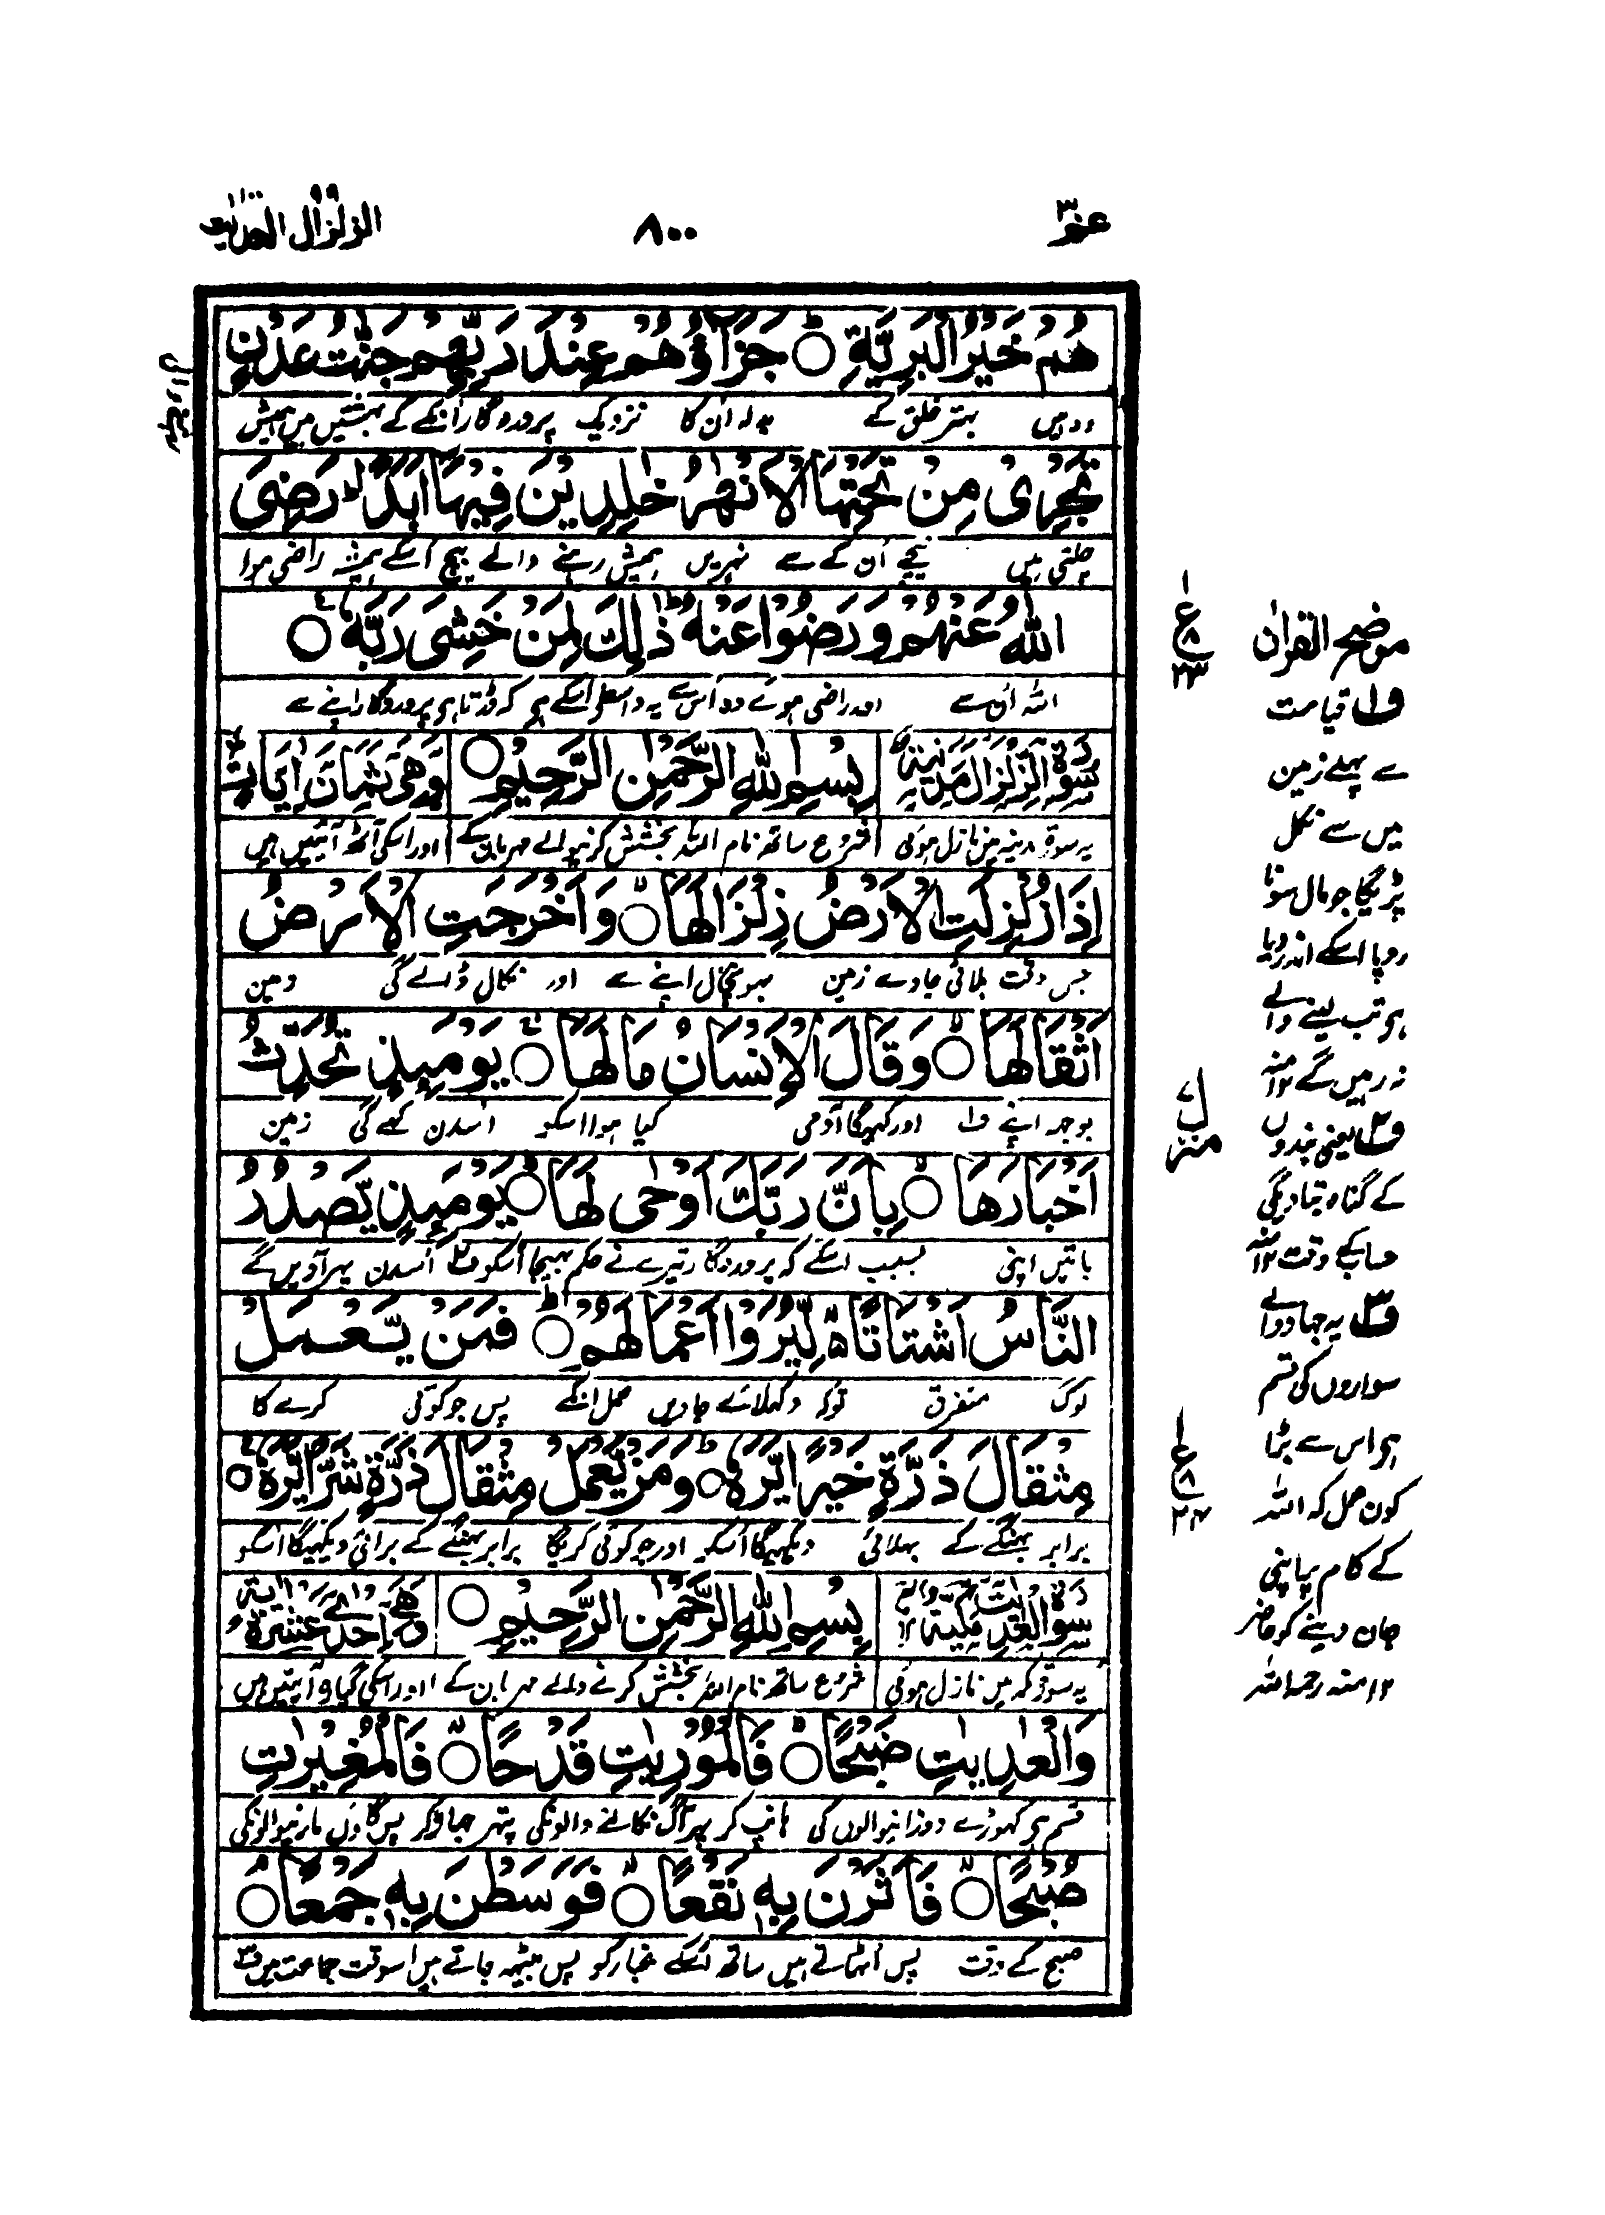 عمّ ٣٠
٨٠٠
الزلزال ٩٩ العديت ١٠٠
هُمْ خَيْرُ الْبَرِيَّةِ ○ جَزَآؤُهُمْ عِنْدَ رَبِّهِمْ جَنّٰتُ عَدْنٍ
وہ ہیں بہتر خلق کے بدلہ اُن کا نزدیک پروردگار اُنکے کے بہشتیں ہیں ہمیش
تَجْرِیْ مِنْ تَحْتِهَا الْاَنْهٰرُ خٰلِدِیْنَ فِیْهَاۤ اَبَدًا ؕ رَضِیَ
چلتی ہیں نیچے اُن کے سے نہریں ہمیش رہنے والے بیچ اُسکے ہمیشہ راضی ہوا
اللّٰهُ عَنْهُمْ وَ رَضُوْا عَنْهُ ؕ ذٰلِكَ لِمَنْ خَشِیَ رَبَّهٗ ○
اللہ اُن سے اور راضی ہوئے وہ اُس سے یہ واسطے اُسکے ہی کہ ڈرتا ہی پروردگار اپنے سے
سُوْرَةُ الزِّلْزَالِ مَدَنِیَّةٌ بِسْمِ اللّٰهِ الرَّحْمٰنِ الرَّحِیْمِ ○ وَهِیَ ثَمَانُ اٰیَاتٍ
یہ سورۃ مدینہ میں نازل ہوئی شروع ساتھ نام اللہ بخشش کرنیوالے مہربان کے اور اسکی آٹھ آیتیں ہیں
اِذَا زُلْزِلَتِ الْاَرْضُ زِلْزَالَهَا ○ وَ اَخْرَجَتِ الْاَرْضُ
جس وقت ہلائی جاوے زمین بہونچال اپنے سے اور نکال ڈالے گی زمین
اَثْقَالَهَا ○ وَ قَالَ الْاِنْسَانُ مَا لَهَا ○ یَوْمَىِٕذٍ تُحَدِّثُ
بوجھ اپنے ف۱ اور کہیگا آدمی کیا ہوا اسکو اُسدن کہے گی زمین
اَخْبَارَهَا ○ بِاَنَّ رَبَّكَ اَوْحٰی لَهَا ○ یَوْمَىِٕذٍ یَّصْدُرُ
باتیں اپنی بسبب اسکے کہ پروردگار تیرے نے حکم بھیجا اُسکو ف۲ اُسدن پھر آویں گے
النَّاسُ اَشْتَاتًا ۙ۬ لِّیُرَوْا اَعْمَالَهُمْ ○ فَمَنْ یَّعْمَلْ
لوگ متفرق توکہ دکھلائے جاویں عمل اُنکے پس جو کوئی کرے گا
مِثْقَالَ ذَرَّةٍ خَیْرًا یَّرَهٗ ○ وَ مَنْ یَّعْمَلْ مِثْقَالَ ذَرَّةٍ شَرًّا یَّرَهٗ ○
برابر بھنگے کے بھلائی دیکھیگا اُسکو اور جو کوئی کریگا برابر بھنگے کے برائی دیکھیگا اسکو
سُوْرَةُ الْعٰدِیٰتِ مَكِّیَّةٌ بِسْمِ اللّٰهِ الرَّحْمٰنِ الرَّحِیْمِ ○ وَهِیَ اِحْدٰی عَشْرَةَ اٰیَةً
یہ سورۃ مکہ میں نازل ہوئی شروع ساتھ نام اللہ بخشش کرنے والے مہربان کے اور اسکی گیارہ آیتیں ہیں
وَ الْعٰدِیٰتِ ضَبْحًا ○ فَالْمُوْرِیٰتِ قَدْحًا ○ فَالْمُغِیْرٰتِ
قسم ہی گھوڑے دوڑانیوالوں کی ہانپ کر پھر آگ نکالنے والونکی پتھر جھاڑ کر پس مارنیوالونکی
صُبْحًا ○ فَاَثَرْنَ بِهٖ نَقْعًا ○ فَوَسَطْنَ بِهٖ جَمْعًا ○
صبح کے وقت پس اُٹھاتے ہیں ساتھ اُسکے غبار کو پس بیٹھ جاتے ہیں اُسوقت جماعت میں ف۳
ع
٨
٢٣
منزل
ع
٨
٢٤
موضح القرآن
ف۱ قیامت
سے پہلے زمین
میں سے نکل
پڑیگا جو مال سونا
روپا اسکے اندر رہا
ہی تب لینے والے
نہ رہیں گے ١٢ منہ
ف۲ یعنی بندوں
کے گناہ بتا دیگی
حساب کے وقت ١٢ منہ
ف۳ یہ جہاد والے
سواروں کی قسم
ہی اس سے بڑا
کون عمل کہ اللہ
کے کام پر اپنی
جان دینے کو حاضر
١٢ منہ رحمہ اللہ